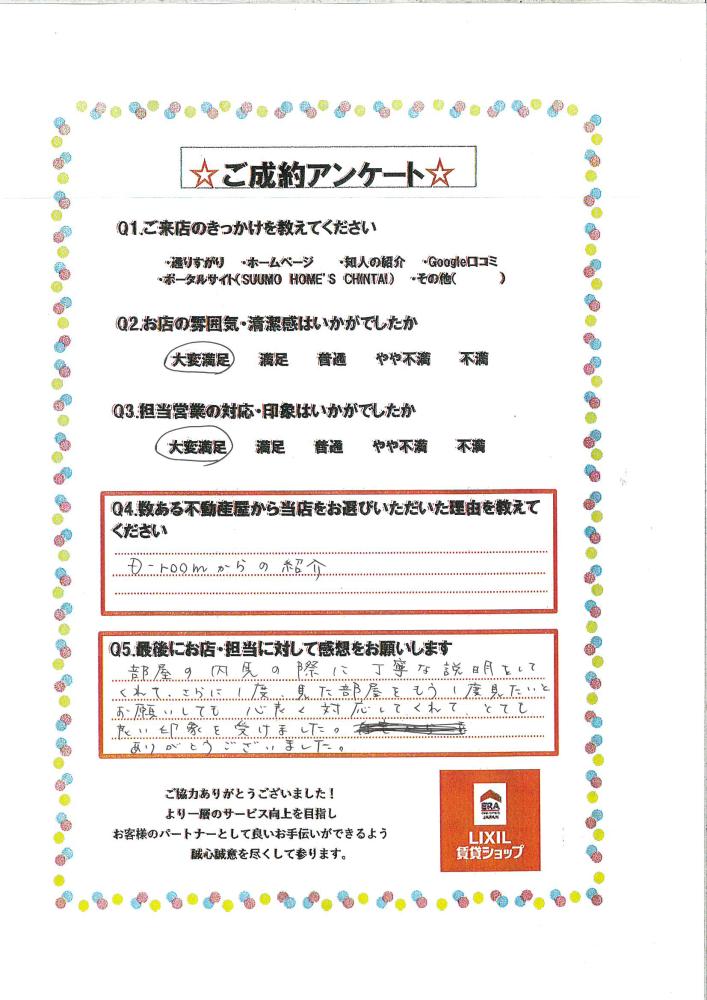 ☆ご成約アンケート☆
Q1.ご来店のきっかけを教えてください
・通りすがり ・ホームページ ・知人の紹介 ・Google口コミ
・ポータルサイト(SUUMO HOME'S CHINTAI) ・その他( )
Q2.お店の雰囲気・清潔感はいかがでしたか
大変満足 満足 普通 やや不満 不満
Q3.担当営業の対応・印象はいかがでしたか
大変満足 満足 普通 やや不満 不満
Q4.数ある不動産屋から当店をお選びいただいた理由を教えて
ください
D-roomからの紹介
Q5.最後にお店・担当に対して感想をお願いします
部屋の内見の際に丁寧な説明をして
くれて、さらに1度、見た部屋をもう1度見たいと
お願いしても 心良く対応してくれて とても
良い印象を受けました。
ありがとうございました。
ご協力ありがとうございました!
より一層のサービス向上を目指し
お客様のパートナーとして良いお手伝いができるよう
誠心誠意を尽くして参ります。
ERA
JAPAN
LIXIL
賃貸ショップ